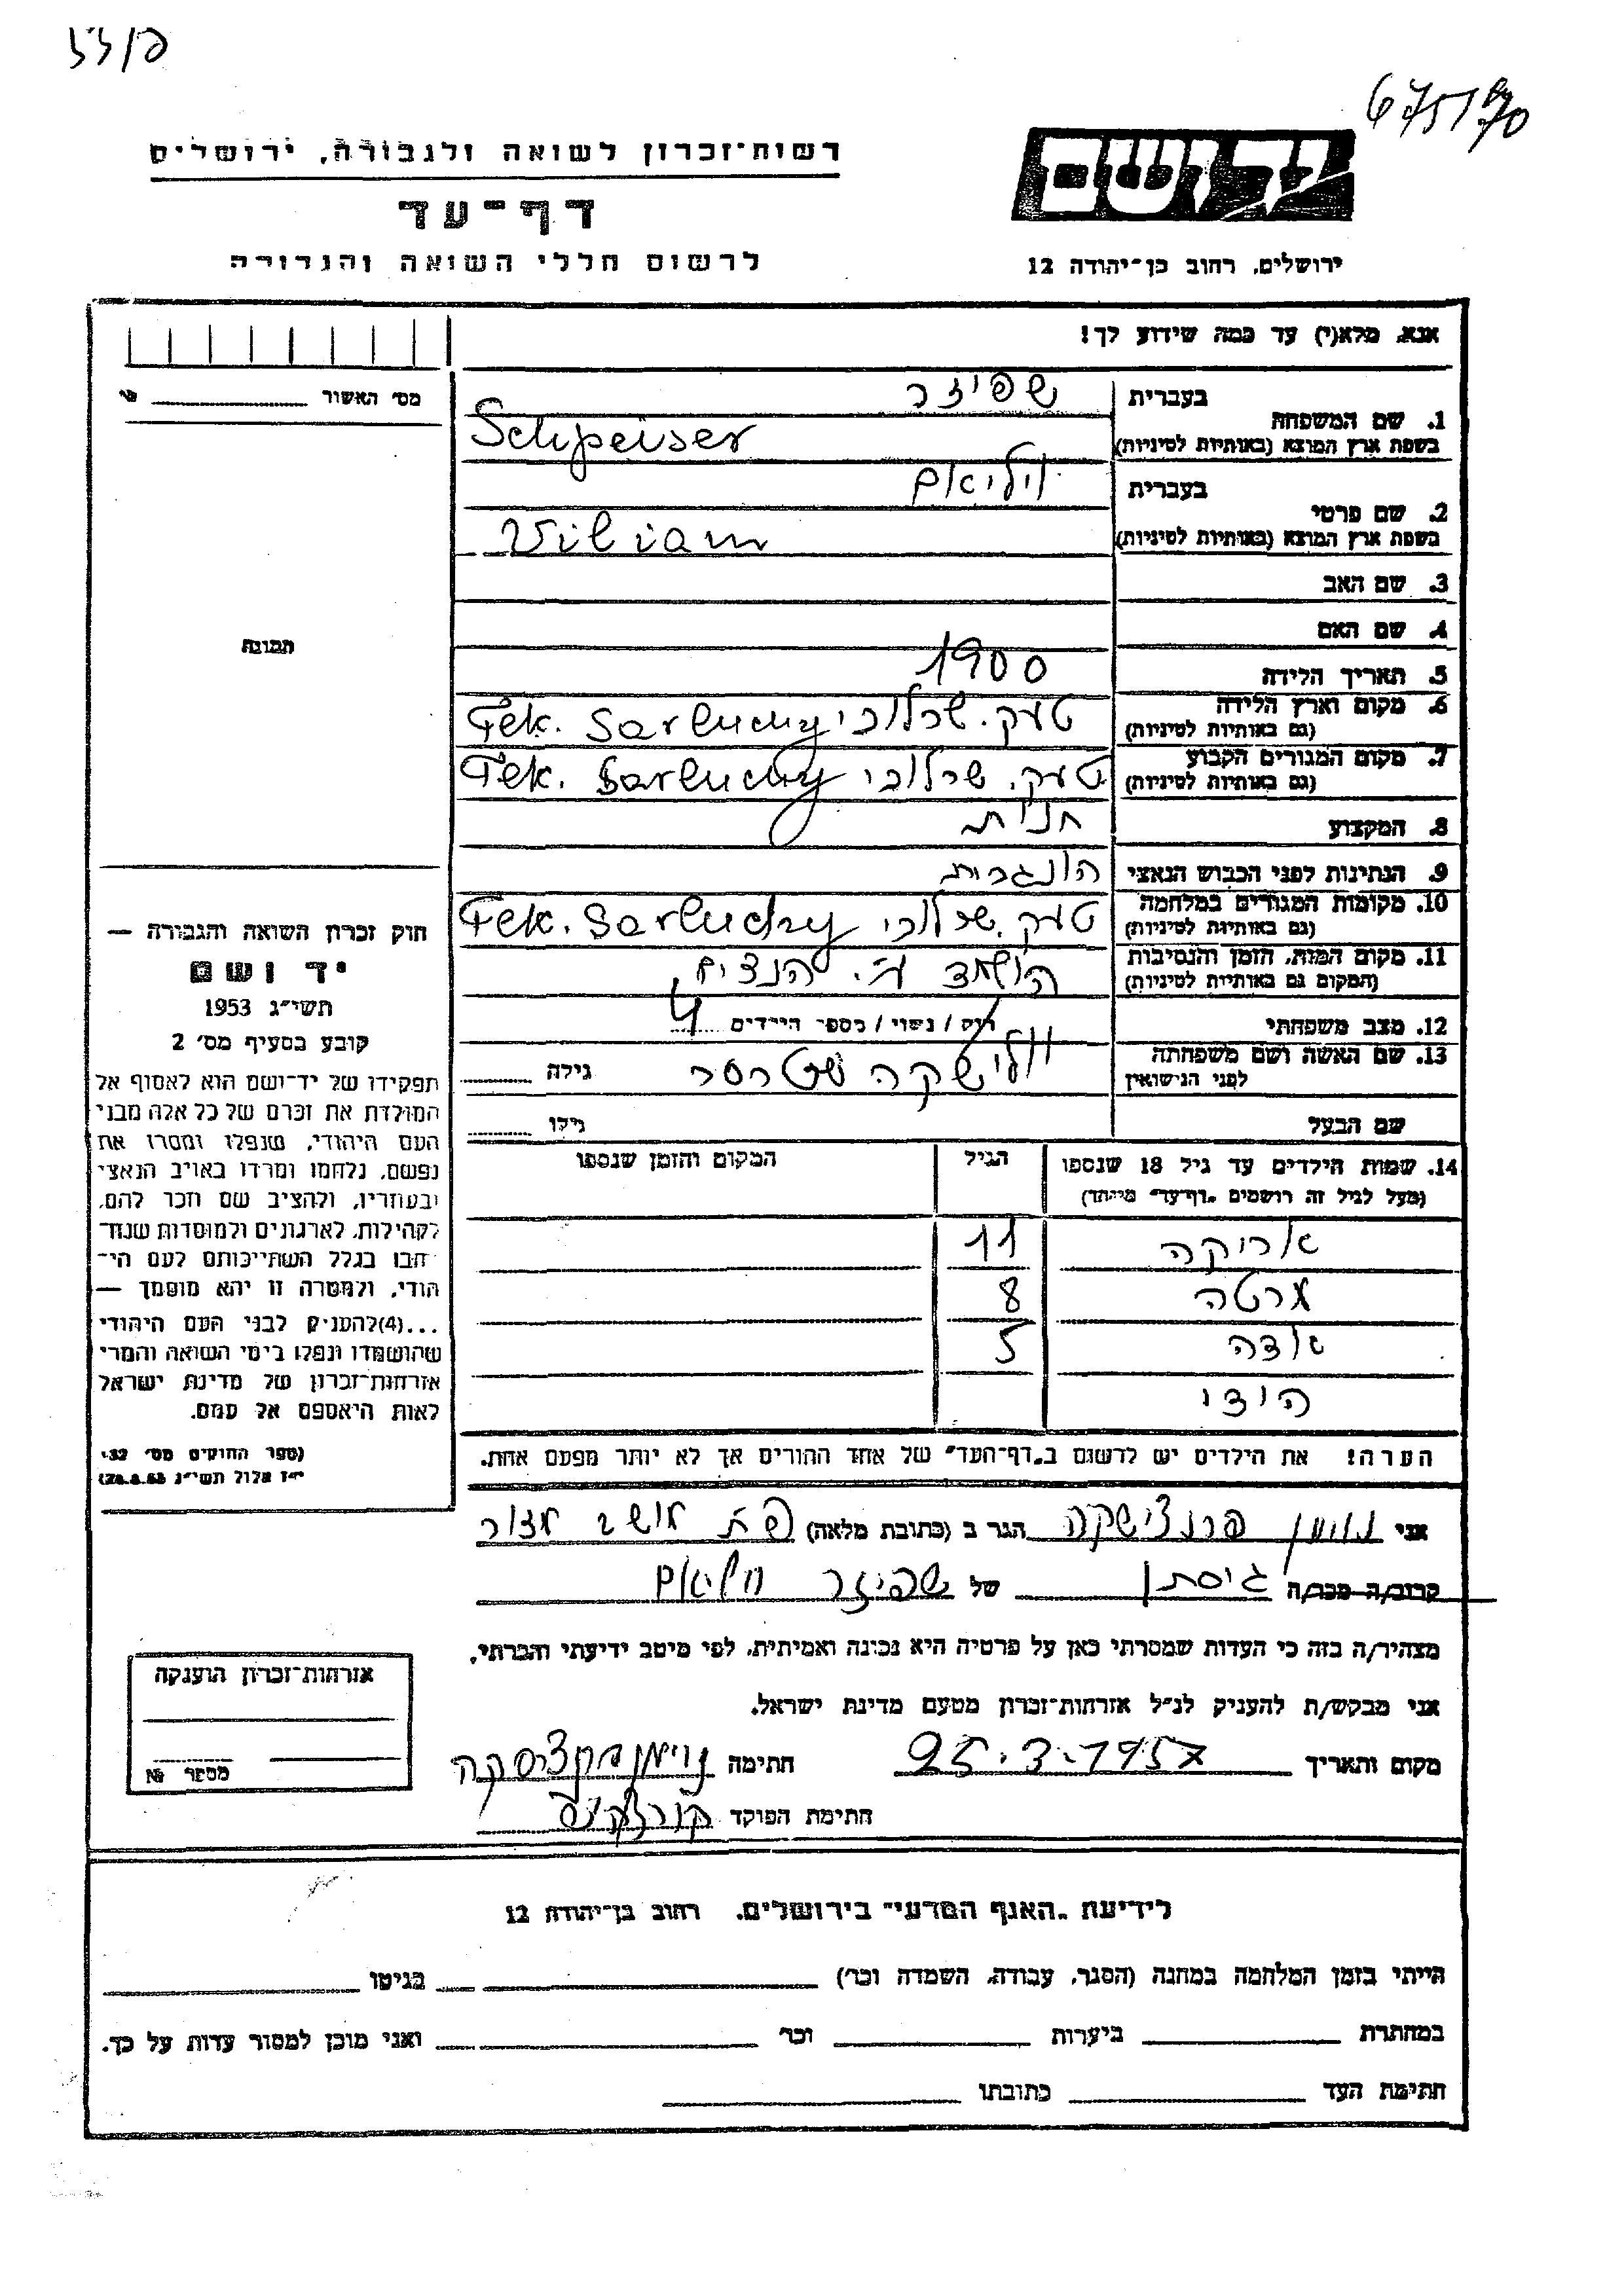 675/70
רשות־זכרון לשואה ולגבורה, ירושלים
דף־עד
לרשום חללי השואה והגבורה
יד ושם
ירושלים, רחוב בן־יהודה 12
אנא, מלא(י) עד כמה שידוע לך!
מס׳ האשור
1. שם המשפחה
בעברית
שפיזר
בשפת ארץ המוצא (באותיות לטיניות)
Schpeiser
2. שם פרטי
בעברית
ויליאם
בשפת ארץ המוצא (באותיות לטיניות)
Viliam
3. שם האב
4. שם האם
5. תאריך הלידה
1900
6. מקום וארץ הלידה
(גם באותיות לטיניות)
טעק. שרלוכי Tek. Sarluchy
7. מקום המגורים הקבוע
(גם באותיות לטיניות)
טעק. שרלוכי Tek. Sarluchy
8. המקצוע
חנות
9. הנתינות לפני הכבוש הנאצי
הונגרית
10. מקומות המגורים במלחמה
(גם באותיות לטיניות)
טעק. שרלוכי Tek. Sarluchy
11. מקום המות, הזמן והנסיבות
(המקום גם באותיות לטיניות)
הושמד ע״י הנצים
12. מצב משפחתי
רוק / נשוי / מספר הילדים 4
13. שם האשה ושם משפחתה
לפני הנישואין
יולישקה שטרסר
גילה
שם הבעל
גילו
14. שמות הילדים עד גיל 18 שנספו
(מעל לגיל זה רושמים „דף־עד״ מיוחד)
הגיל
המקום והזמן שנספו
אריקה 11
מרטה 8
אדה 5
הודי
הערה! את הילדים יש לרשום ב„דף־העד״ של אחד ההורים אך לא יותר מפעם אחת.
תמונה
חוק זכרון השואה והגבורה —
יד ושם
תשי״ג 1953
קובע בסעיף מס׳ 2
תפקידו של יד־ושם הוא לאסוף אל
המולדת את זכרם של כל אלה מבני
העם היהודי, שנפלו ומסרו את
נפשם, נלחמו ומרדו באויב הנאצי
ובעוזריו, ולהציב שם וזכר להם,
לקהילות, לארגונים ולמוסדות שנח־
רבו בגלל השתייכותם לעם הי־
הודי, ולמטרה זו יהא מוסמך —
...(4)להעניק לבני העם היהודי
שהושמדו ונפלו בימי השואה והמרי
אזרחות־זכרון של מדינת ישראל
לאות היאספם אל עמם.
(ספר החוקים מס׳ 132
י״ז אלול תשי״ג 28.8.53)
אני נוימן פרנצישקה הגר ב (כתובת מלאה) פת מושב מצור
קרוב/ה מכר/ה גיסתו של שפיזר ויליאם
מצהיר/ה בזה כי העדות שמסרתי כאן על פרטיה היא נכונה ואמיתית, לפי מיטב ידיעתי והכרתי.
אני מבקש/ת להעניק לנ״ל אזרחות־זכרון מטעם מדינת ישראל.
מקום ותאריך 25-3-1957 חתימה נוימן פרנציסקה
חתימת הפוקד
אזרחות־זכרון הוענקה
מספר №
לידיעת „האגף המדעי״ בירושלים, רחוב בן־יהודה 12
הייתי בזמן המלחמה במחנה (הסגר, עבודה, השמדה וכר׳) בגיטו
במחתרת ביערות וכר׳ ואני מוכן למסור עדות על כך.
חתימת העד כתובתו